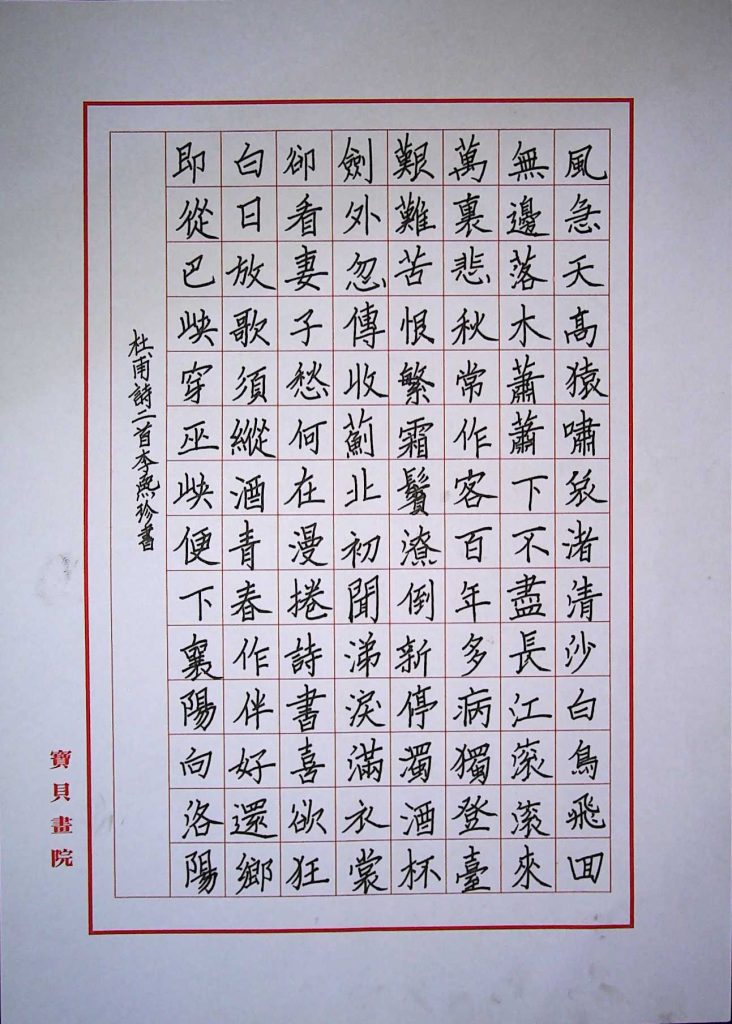 風急天高猿嘯哀渚清沙白鳥飛回
無邊落木蕭蕭下不盡長江滾滾來
萬裏悲秋常作客百年多病獨登臺
艱難苦恨繁霜鬢潦倒新停濁酒杯
劍外忽傳收薊北初聞涕淚滿衣裳
卻看妻子愁何在漫捲詩書喜欲狂
白日放歌須縱酒青春作伴好還鄉
即從巴峽穿巫峽便下襄陽向洛陽
杜甫詩二首李熙珍書
寶貝畫院